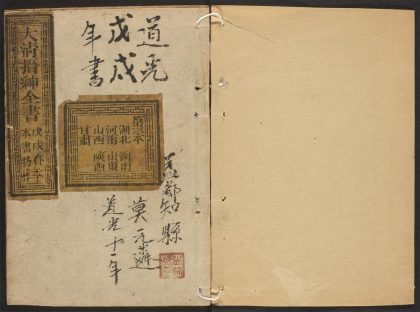 道光
戊戌
年書
大清搢紳全書
戊戌春季
第三本
湖北 湖南
河南 山東
山西 陝西
甘肅
都知縣
莫
道光十一年